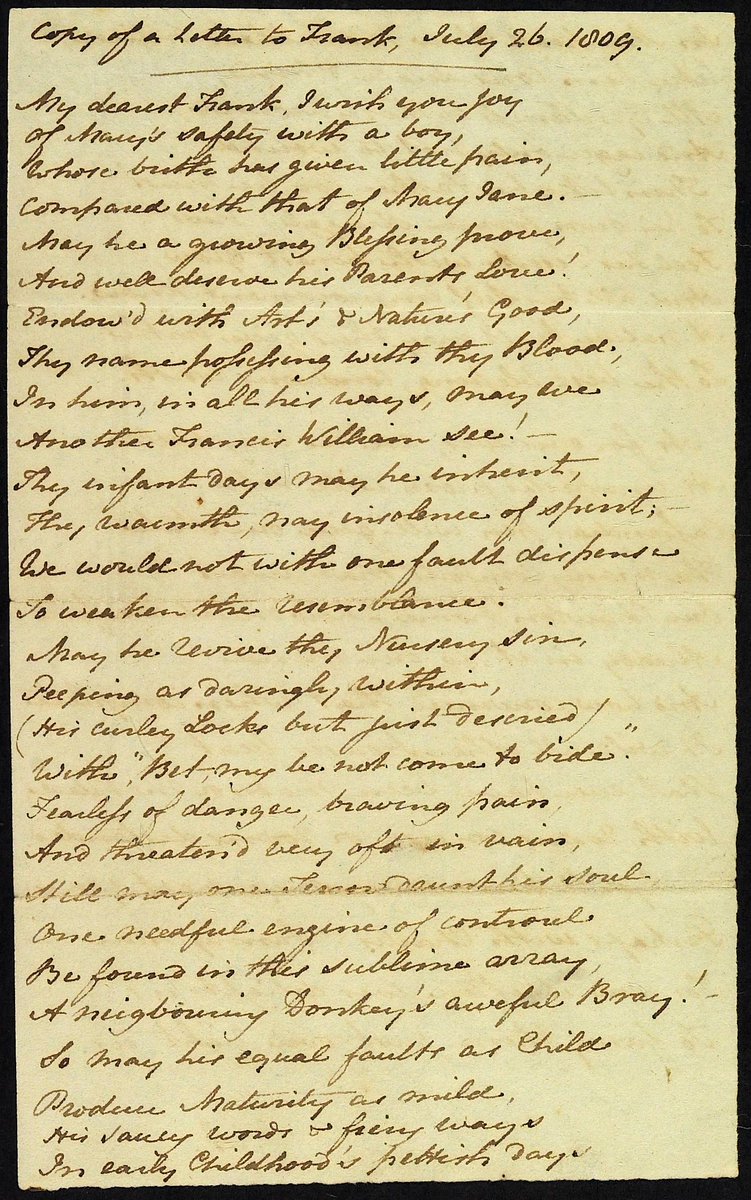 Copy of a Letter to Frank, July 26. 1809.
My dearest Frank, I wish you joy
of Mary's safety with a boy,
Whose birth has given little pain,
Compared with that of Mary Jane. —
May he a growing Blessing prove,
And well deserve his Parents Love!
Endow'd with Art's & Nature's Good,
Thy name possessing with thy Blood,
In him, in all his ways, may we
Another Francis William see! —
Thy infant days may he inherit,
Thy warmth, nay insolence of spirit; —
We would not with one fault dispense
To weaken the resemblance.
May he revive thy Nursery sin,
Peeping as daringly within,
(His curley Locks but just descried)
With, "Bet, my be not come to bide."
Fearless of danger, braving pain,
And threaten'd very oft in vain,
Still may one Terror daunt his soul
One needful engine of controul
Be found in this sublime array,
A neigbouring Donkey's aweful Bray! —
So may his equal faults as Child
Produce Maturity as mild,
His saucy words & fiery ways
In early Childhood's pettish days